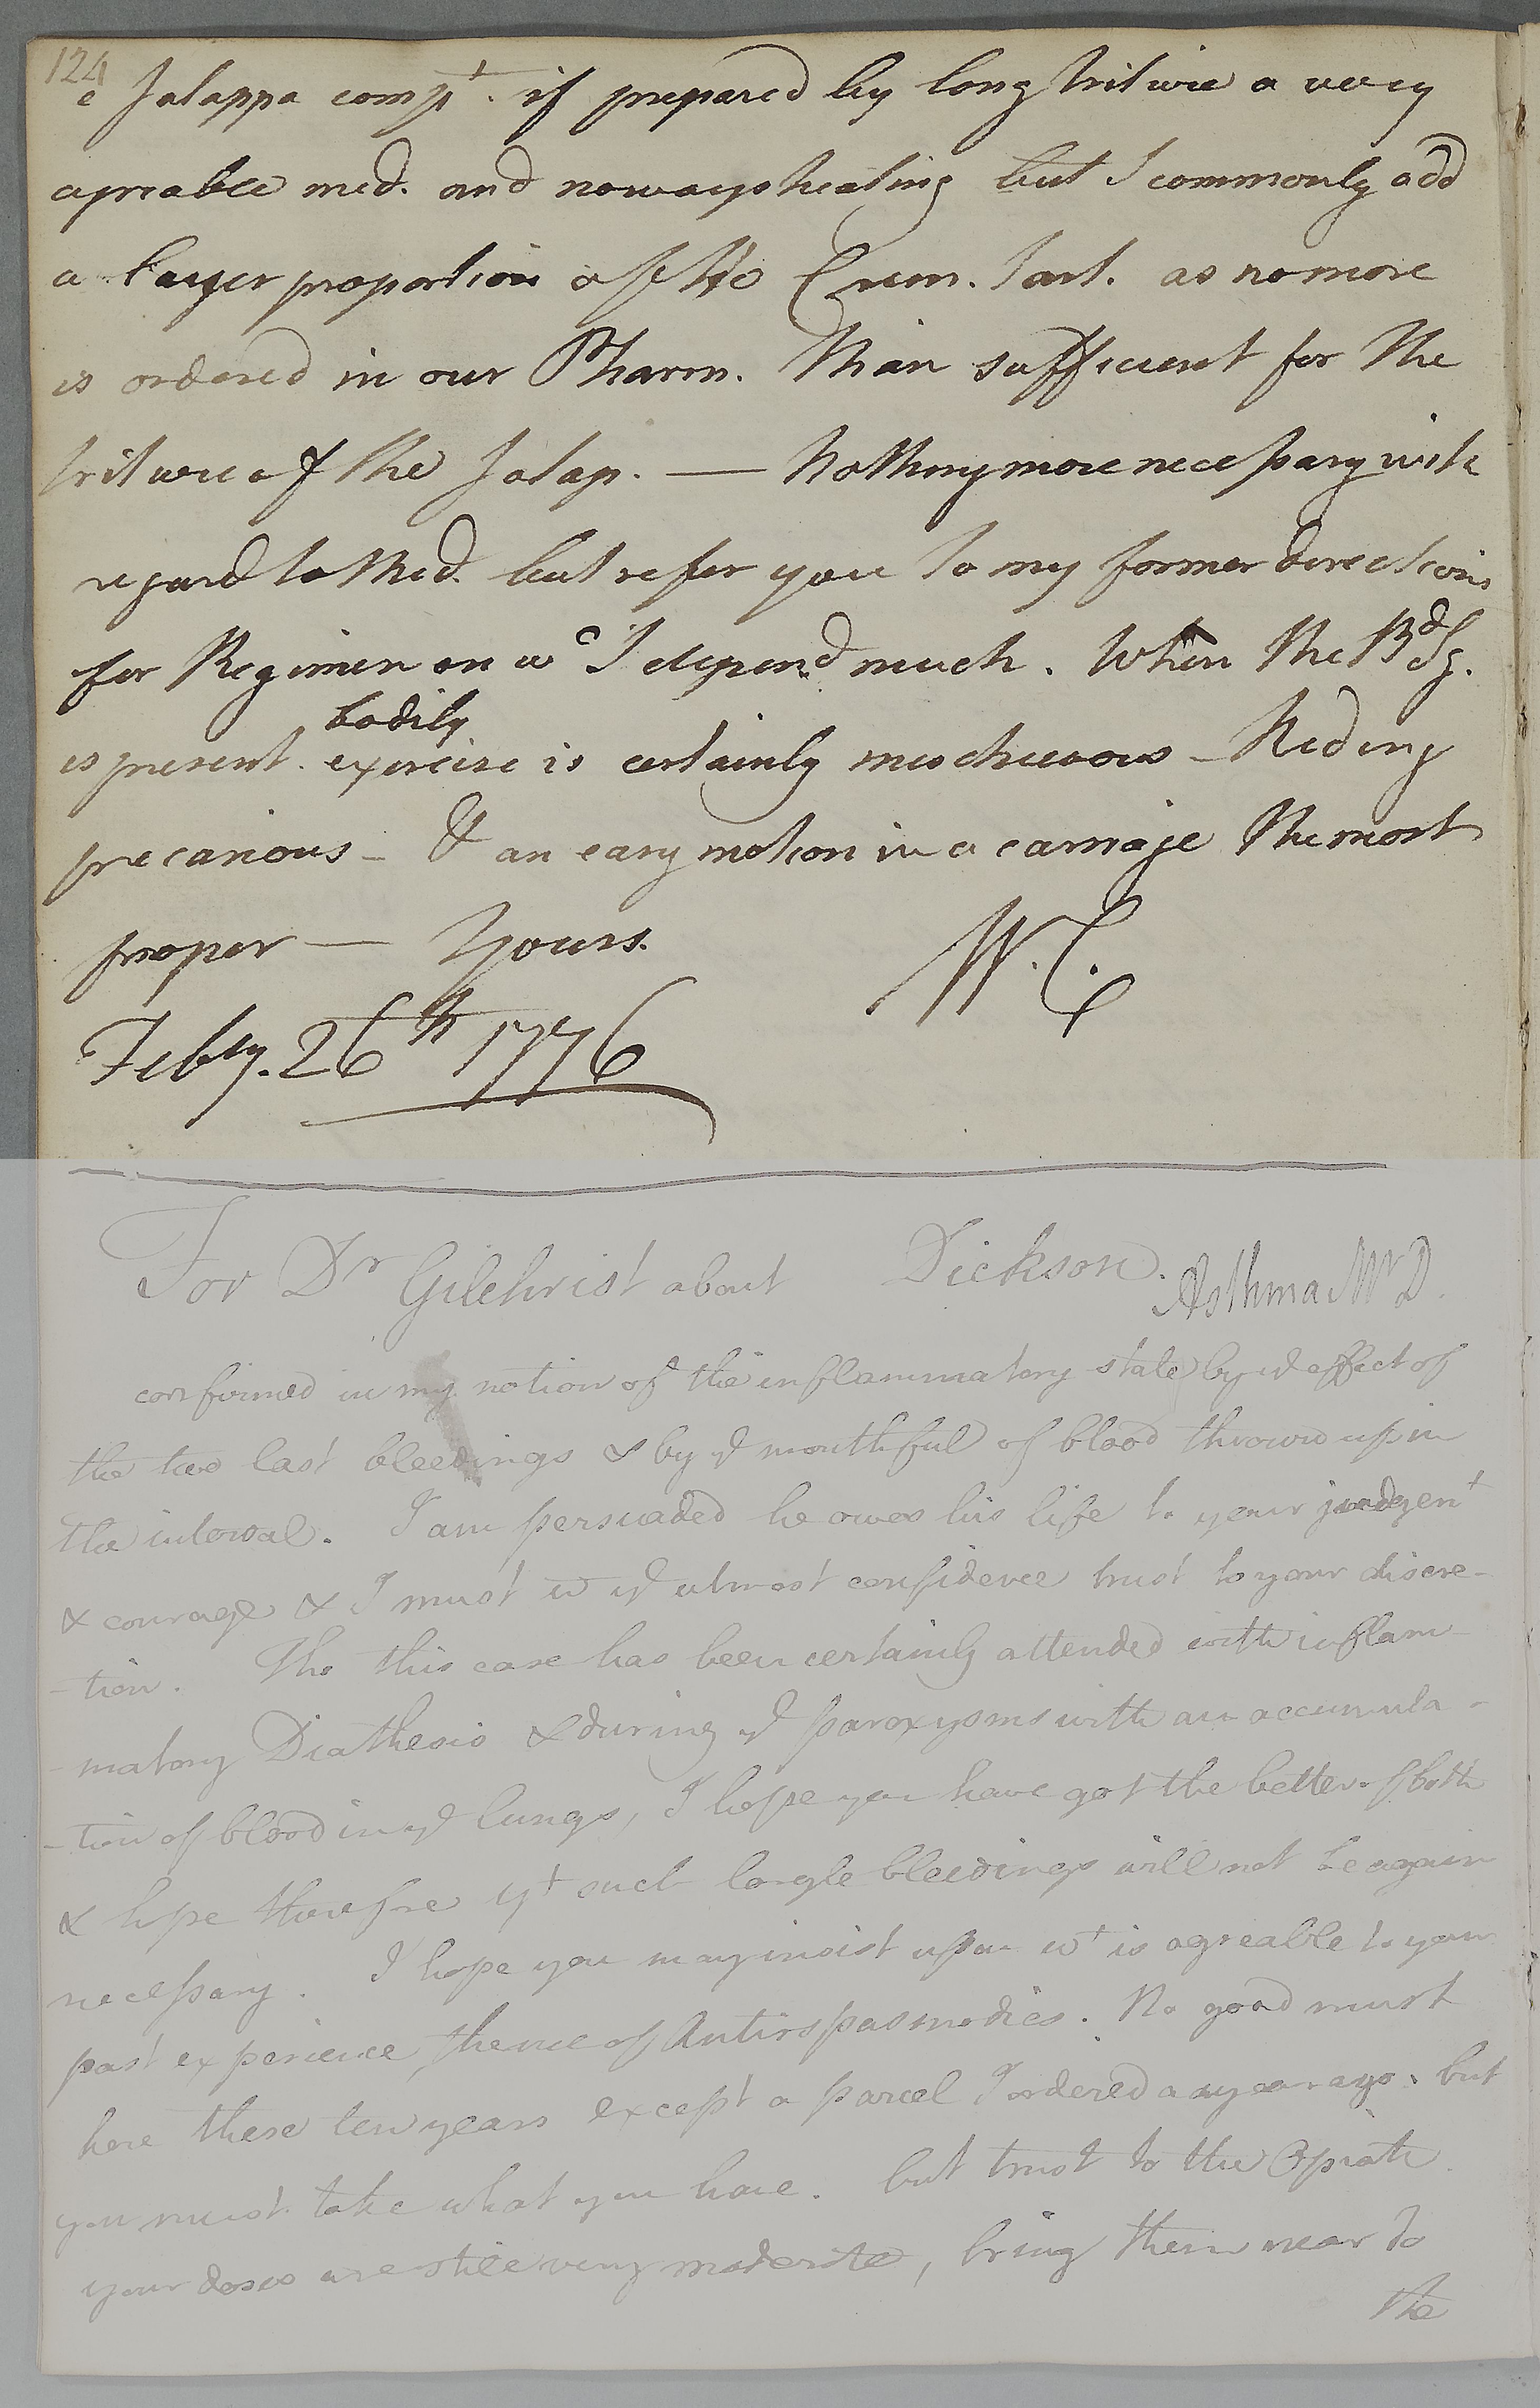 124
e Jalappa comp.t if prepared by long triture a very
agreable med. and noways heating but I commonly add
a larger proportion of the Crem. Tart. as no more
is ordered in our Pharm. than sufficient for the
triture of the Jalap. — Nothing more necessary with
regard to Med. but refer you to my former directions
for Regimen on wc I depend much. When the Bdg.
bodily
is present. exercise is certainly mischievous – Riding
precarious – & an easy motion in a carriage the most
proper — Yours. W.C.
Febry. 26th 1776
For Dr Gilchrist about Dickson. Asthma Mr D.
confirmed in my notion of the inflammatory state by ye effect of
the two last bleedings & by ye mouthful of blood thrown up in
the interval. I am persuaded he owes his life to your judgent
& courage & I must w ye utmost confidence trust to your discre-
-tion. Tho this case has been certainly attended with inflam-
-matory Diathesis & during ye paroxysms with an accumula-
-tion of blood in ye lungs, I hope you have got the better of both
& hope therefore yt such largle bleedings will not be again
necessary. I hope you may insist upon wt is agreable to your
past experience, the use of Antispasmodics. No good musk
here these ten years except a parcel I ordered a year ago. but
you must take what you have. but trust to the Opiate
your doses are still very moderate, bring them near to
the